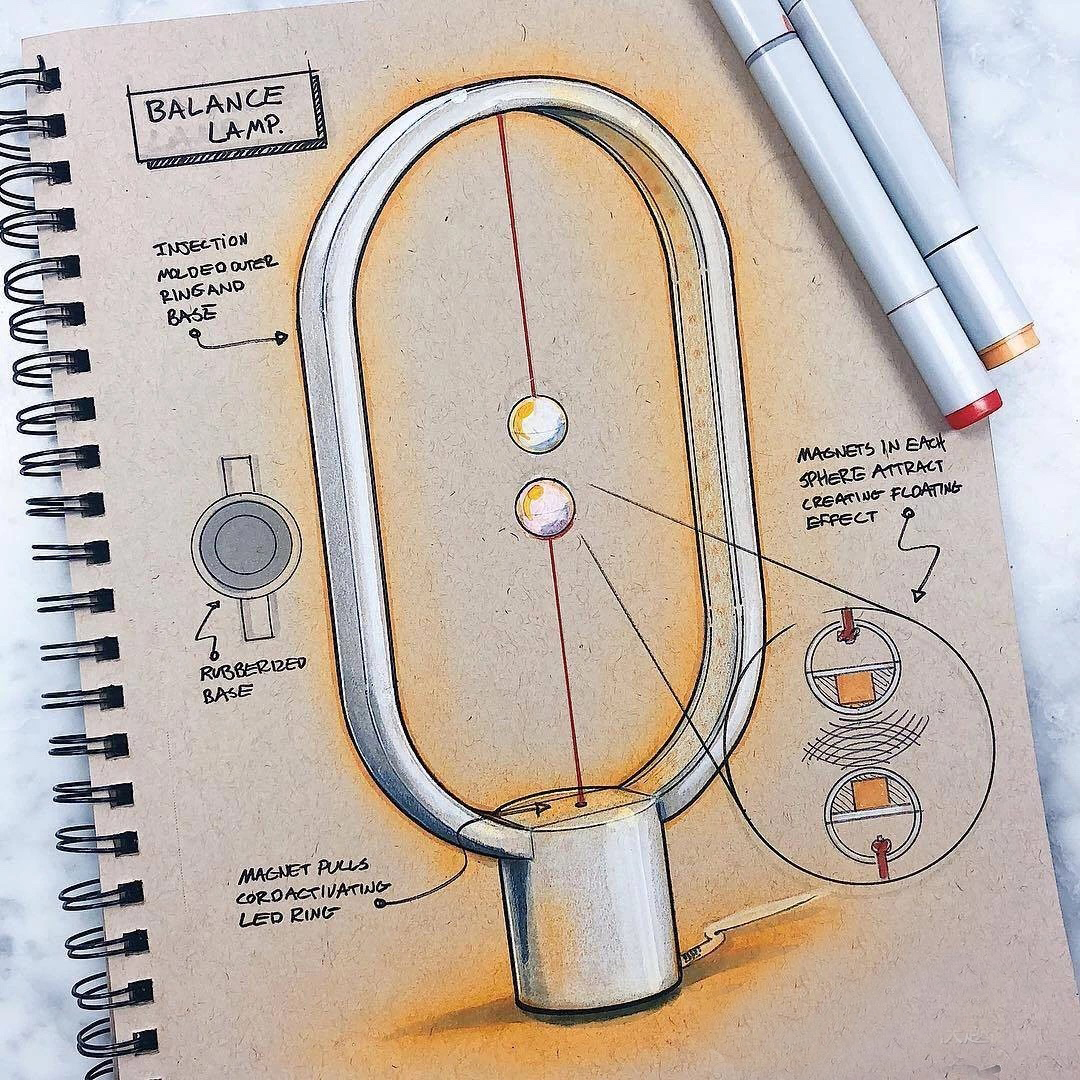 BALANCE
LAMP.
INJECTION
MOLDED OUTER
RING AND
BASE
MAGNETS IN EACH
SPHERE ATTRACT
CREATING FLOATING
EFFECT
RUBBERIZED
BASE
MAGNET PULLS
CORD ACTIVATING
LED RING